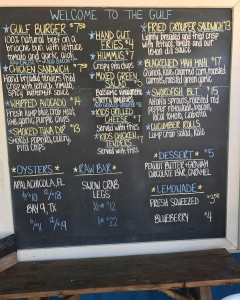 WELCOME TO THE GULF
GULF BURGER $7.50
100% natural beef on a
brioche bun with lettuce
tomato and garlic aioli
CHICKEN SANDWICH $7.50
Hand breaded tenders fried
crisp with lettuce, tomato,
spicy buttermilk sauce
WHIPPED AVOCADO $4
Fresh lump crab, fresh
garlic, Chips
SMOKED TUNA DIP $13
Smoked paprika, celery,
Pita Chips
HAND CUT
FRIES $4
HUMMUS $7
Crispy red onion
MIXED GREEN
SALAD
Balsamic vinaigrette
cherry tomatoes
KIDS GRILLED
CHEESE
Served with fries
KIDS CHICKEN
TENDERS
Served with fries
FRIED GROUPER SANDWICH $13
Lightly breaded and fried crisp
with lettuce, tomato and our
basil dill sauce
BLACKENED MAHI MAHI $17
Quinoa, kale, charred corn, roasted
carrots, roasted green beans
SWORDFISH BLT $15
Alfalfa sprouts, roasted red
pepper remoulade,
local tomato, Cabernet
CUCUMBER ROLLS
Lump crab salad, kale
OYSTERS
APALACHICOLA, FL
6/$10 12/$18
BAY 9, TX
RAW BAR
SNOW CRAB
LEGS
1/2 lb $12
1 lb $22
DESSERT $5
PEANUT BUTTER + GRAHAM
CHOCOLATE BAR, CARAMEL
LEMONADE
FRESH SQUEEZED $3.50
BLUEBERRY $4